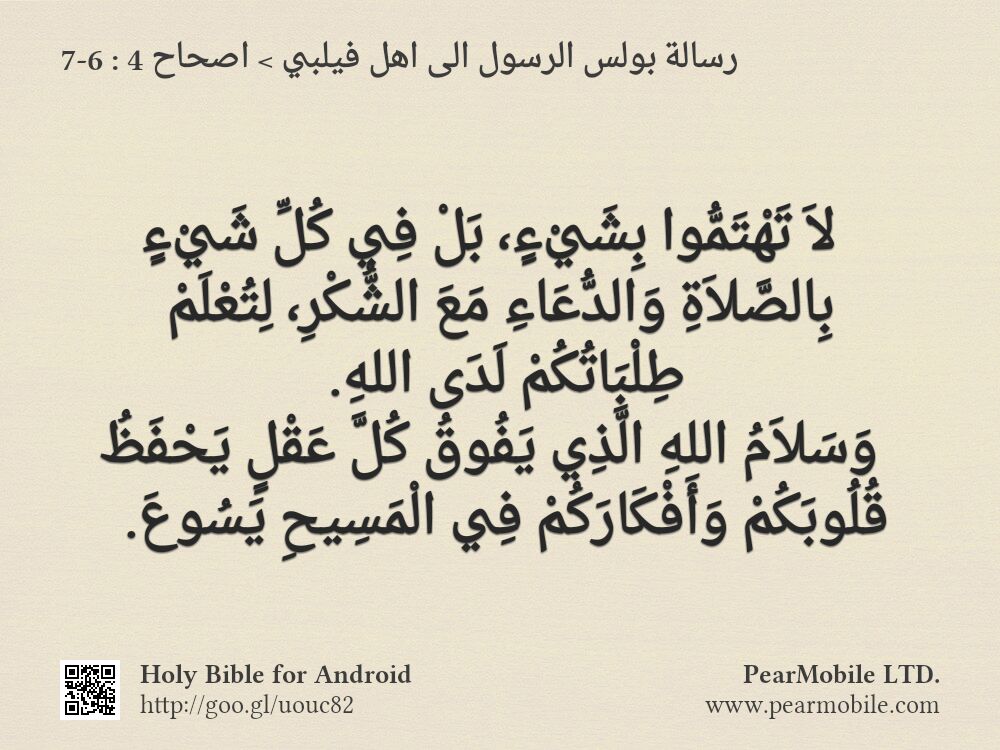 رسالة بولس الرسول الى اهل فيلبي > اصحاح 4 : 6-7
لاَ تَهْتَمُّوا بِشَيْءٍ، بَلْ فِي كُلِّ شَيْءٍ
بِالصَّلاَةِ وَالدُّعَاءِ مَعَ الشُّكْرِ، لِتُعْلَمْ
طِلْبَاتُكُمْ لَدَى اللهِ.
وَسَلاَمُ اللهِ الَّذِي يَفُوقُ كُلَّ عَقْلٍ يَحْفَظُ
قُلُوبَكُمْ وَأَفْكَارَكُمْ فِي الْمَسِيحِ يَسُوعَ.
Holy Bible for Android
http://goo.gl/uouc82
PearMobile LTD.
www.pearmobile.com